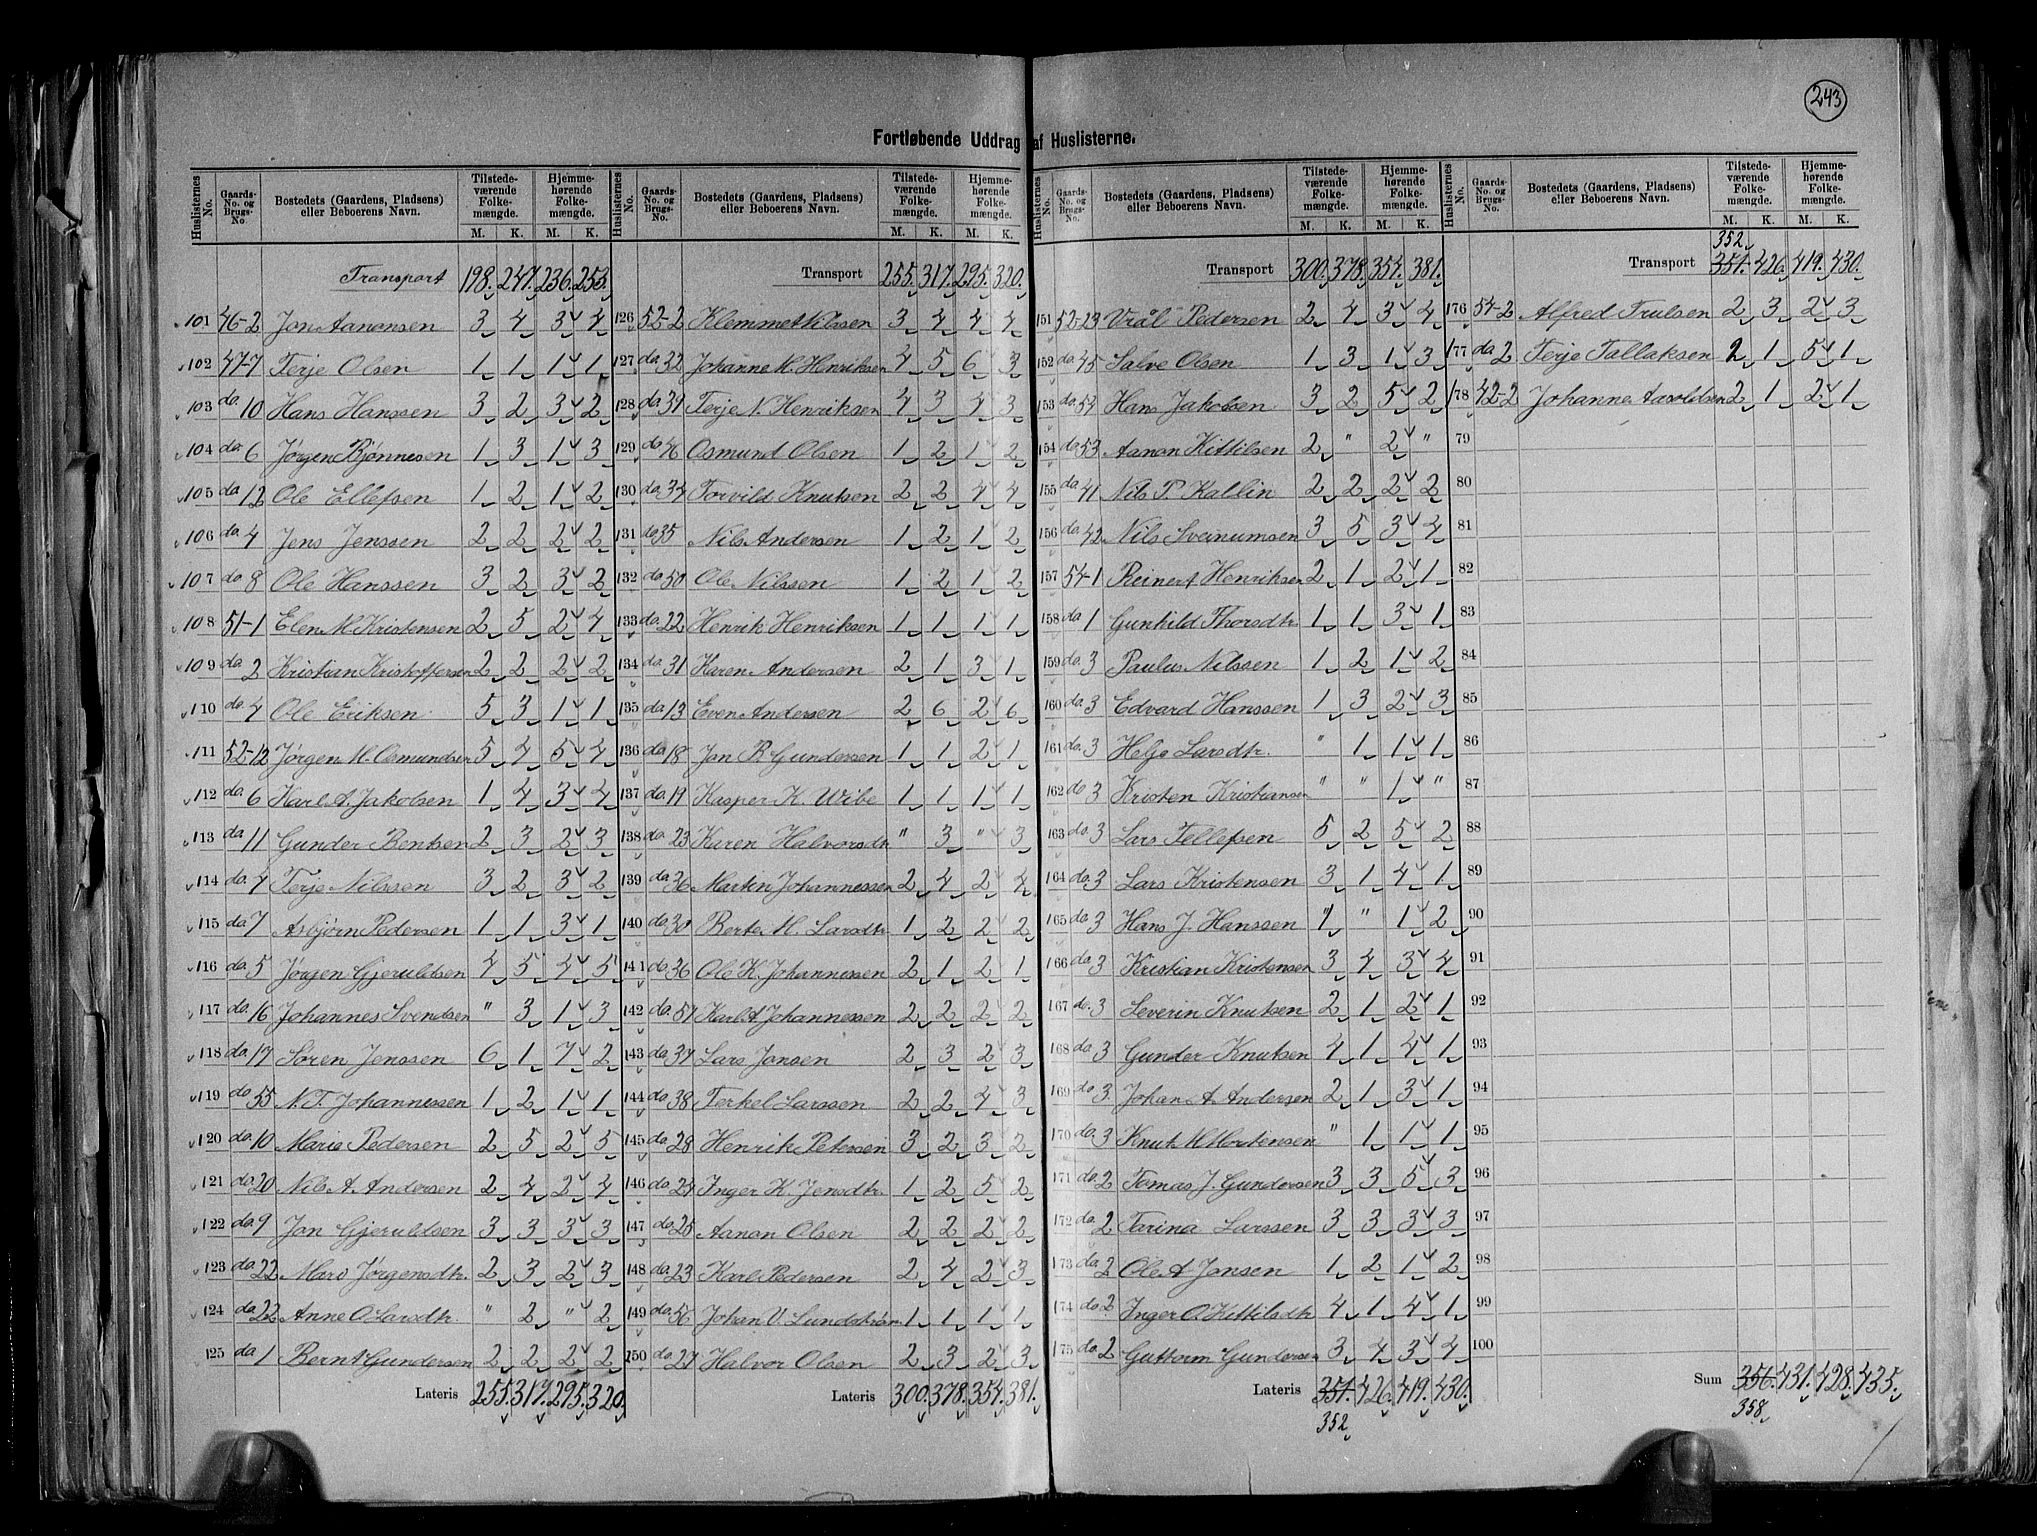 243
Fortløbende Uddrag af Huslisterne.
Huslisternes No. Gaards-No. og Brugs-No Bostedets (Gaardens, Pladsens) eller Beboerens Navn. Tilstede-værende Folke-mængde. M. K. Hjemme-hørende Folke-mængde. M. K.
Transport 198. 247. 236. 253.
101 46-2 Jon Aanonsen 3 4 3 4
102 47-7 Terje Olsen 1 1 1 1
103 do 10 Hans Hanssen 3 2 3 2
104 do 6 Jørgen Bjønnesen 1 3 1 3
105 do 12 Ole Ellefsen 1 2 1 2
106 do 4 Jens Jenssen 2 2 2 2
107 do 8 Ole Hanssen 3 2 3 2
108 51-1 Elen M Kristensen 2 5 2 4
109 do 2 Kristian Kristoffersen 2 2 2 2
110 do 4 Ole Eriksen 5 3 1 1
111 52-12 Jørgen M. Osmundsen 5 4 5 4
112 do 6 Karl A. Jakobsen 1 4 3 4
113 do 11 Gunder Bentsen 2 3 2 3
114 do 4 Terje Nilssen 3 2 3 2
115 do 7 Asbjørn Pedersen 1 1 3 1
116 do 5 Jørgen Gjeruldsen 4 5 4 5
117 do 16 Johannes Svendsen " 3 1 3
118 do 17 Søren Jenssen 6 1 7 2
119 do 55 N. T. Johannessen 1 2 1 1
120 do 10 Marie Pedersen 2 5 2 5
121 do 20 Nils A. Andersen 2 4 2 4
122 do 9 Jon Gjeruldsen 3 3 3 3
123 do 22 Jørgensdtr. 2 3 2 3
124 do 22 Anne O Larsdtr. " 2 " 2
125 do 1 Bernt Gundersen 2 2 2 2
Lateris 255. 317. 295. 320.
Huslisternes No. Gaards-No. og Brugs-No. Bostedets (Gaardens, Pladsens) eller Beboerens Navn. Tilstede-værende Folke-mængde. M. K. Hjemme-hørende Folke-mængde. M. K.
Transport 255. 317. 295. 320.
126 52-2 Klemmet Nilssen 3 4 4 4
127 do 32 Johanne M. Henriksen 4 5 6 3
128 do 31 Terje N. Henriksen 4 3 4 3
129 do 46 Osmund Olsen 1 2 1 2
130 do 34 Torvild Knutsen 2 2 4 4
131 do 35 Nils Andersen 1 2 1 2
132 do 50 Ole Nilssen 1 2 1 2
133 do 22 Henrik Henriksen 1 1 1 1
134 do 31 Karen Andersen 2 1 3 1
135 do 13 Even Andersen 2 6 2 6
136 do 18 Jon B Gundersen 1 1 2 1
137 do 19 Kasper K. Wibe 1 1 1 1
138 do 23 Karen Halvorsdtr " 3 " 3
139 do 36 Martin Johannessen 2 4 2 4
140 do 30 Berte M. Larsdtr 1 2 2 2
141 do 36 Ole K. Johannessen 2 1 2 1
142 do 57 Karl A Johannessen 2 2 2 2
143 do 37 Lars Jonsen 2 3 2 3
144 do 38 Terkel Larssen 2 2 4 3
145 do 28 Henrik Petersen 3 2 3 2
146 do 24 Inger K. Jensdtr. 1 2 5 2
147 do 25 Aanon Olsen 2 2 2 2
148 do 23 Karl Pedersen 2 4 2 3
149 do 56 Johan V. Lundstrøm 1 1 1 1
150 do 27 Halvor Olsen 2 3 2 3
Lateris 300. 378. 354. 381.
Huslisternes No. Gaards-No. og Brugs-No. Bostedets (Gaardens, Pladsens) eller Beboerens Navn. Tilstede-værende Folke-mængde. M. K. Hjemme-hørende Folke-mængde. M. K.
Transport 300. 378. 354. 381.
151 52-23 Vrål Pedersen 2 4 3 4
152 do 45 Salve Olsen 1 3 1 3
153 do 54 Hans Jakobsen 3 2 5 2
154 do 53 Aanon Kittilsen 2 " 2 "
155 do 41 Nils P. Kallin 2 2 2 2
156 do 42 Nils Sveinumsen 3 5 3 4
157 54-1 Reinert Henriksen 2 1 2 1
158 do 1 Gunhild Thorsdtr 1 1 3 1
159 do 3 Paulus Nilssen 1 2 1 2
160 do 3 Edvard Hanssen 1 3 2 3
161 do 3 Helje Larsdtr. " 1 1 1
162 do 3 Kristen Kristiansen " " 1 "
163 do 3 Lars Tellefsen 5 2 5 2
164 do 3 Lars Kristensen 3 1 4 1
165 do 3 Hans J. Hanssen 1 " 1 2
166 do 3 Kristian Kristensen 3 4 3 4
167 do 3 Severin Knutsen 2 1 2 1
168 do 3 Gunder Knutsen 4 1 4 1
169 do 3 Johan A. Andersen 2 1 3 1
170 do 3 Knut M Mortensen " 1 1 1
171 do 2 Tomas J. Gundersen 3 3 5 3
172 do 2 Tarina Larssen 3 3 3 3
173 do 2 Ole A Jonsen 1 2 1 2
174 do 2 Inger O. Kittilsdtr 4 1 4 1
175 do 2 Guttorm Gundersen 3 4 3 4
Lateris 351. 426. 419. 430.
352
Huslisternes No. Gaards-No. og Brugs-No. Bostedets (Gaardens, Pladsens) eller Beboerens Navn. Tilstede-værende Folke-mængde. M. K. Hjemme-hørende Folke-mængde. M. K.
352
Transport 351. 426. 419. 430.
176 54-2 Alfred Trulsen 2 3 2 3
177 do 2 Terje Tallaksen 2 1 5 1
178 42-2 Johanne Aasoldsen 2 1 2 1
79
80
81
82
83
84
85
86
87
88
89
90
91
92
93
94
95
96
97
98
99
100
Sum 356. 431. 428. 435.
358